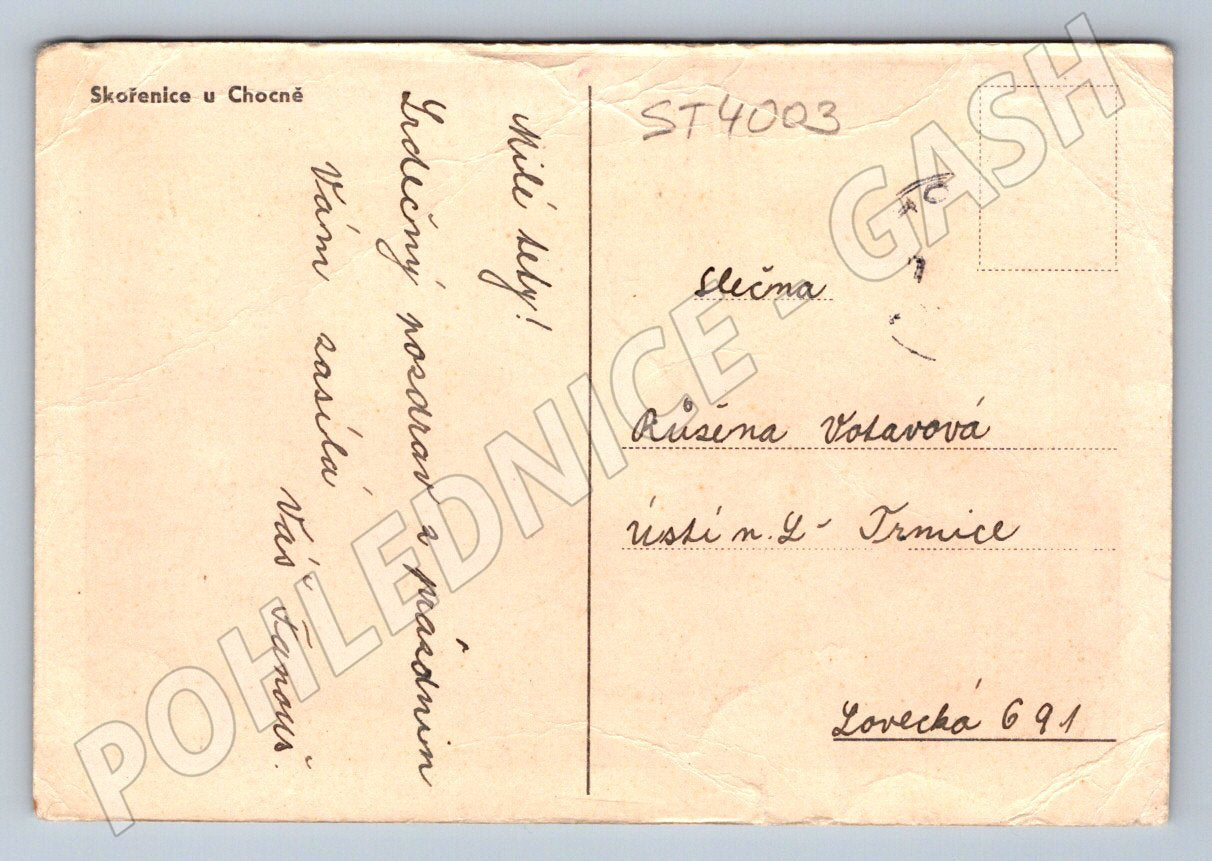 Skořenice u Chocně
Milé tety!
Srdečný pozdrav z prásdnim
Vám zasílá
Váš Fanouš.
ST4003
Slečna
Růšena Votavová
Ústí n. L- Trmice
Lovecká 691
POHLEDNICE - GASH